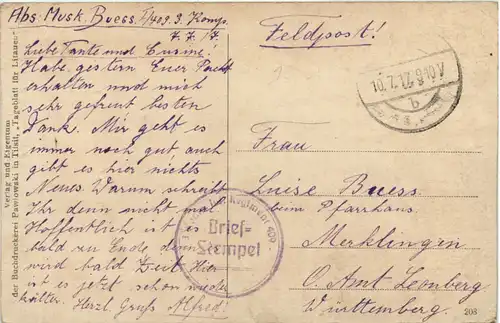 Abs: Musk. Buess. I/409. 3. Komp.
7. 7. 17.
Liebe Tante und Cusine!
Habe gestern Euer Packet
erhalten und mich
sehr gefreut besten
Dank. Mir geht es
immer noch gut auch
gibt es hier nichts
Neues. Darum schreibt
Ihr denn nicht mal
Hoffentlich ist es
bald zu Ende, denn es
wird bald Zeit. Hier
ist es jetzt schon wieder
kälter. Herzl. Gruß Alfred.
Verlag und Eigentum
der Buchdruckerei Pawlowski in Tilsit, „Tageblatt für Litauen“
Feldpost!
10.7.17. 8-10 V
b
Regiment 409
Brief-
Stempel
Frau
Luise Buess
beim Pfarrhaus.
Merklingen
O. Amt Leonberg
Württemberg.
203